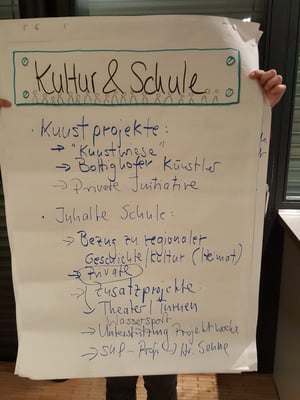 Kultur & Schule
· Kunstprojekte:
→ "Kunstwiese"
→ Bottighofer Künstler
→ Private Initiative
· Inhalte Schule:
→ Bezug zu regionaler
Geschichte/Kultur (Heimat)
→ Private
→ Zusatzprojekte:
Theater/Turnen
Wassersport
→ Unterstützung Projektwoche
→ Hr. Sonne